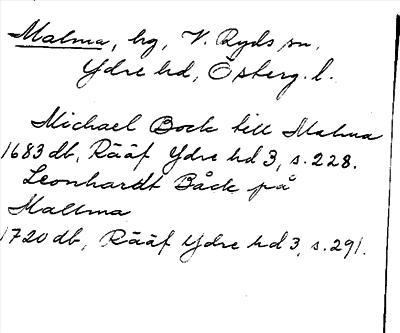 Malma, hg, V. Ryds sn.
Ydre hd, Österg. l.
Michael Bock till Malma
1683 db, Rääf Ydre hd 3, s. 228.
Leonhardt Båck på
Mallma
1720 db, Rääf Ydre hd 3, s. 291.